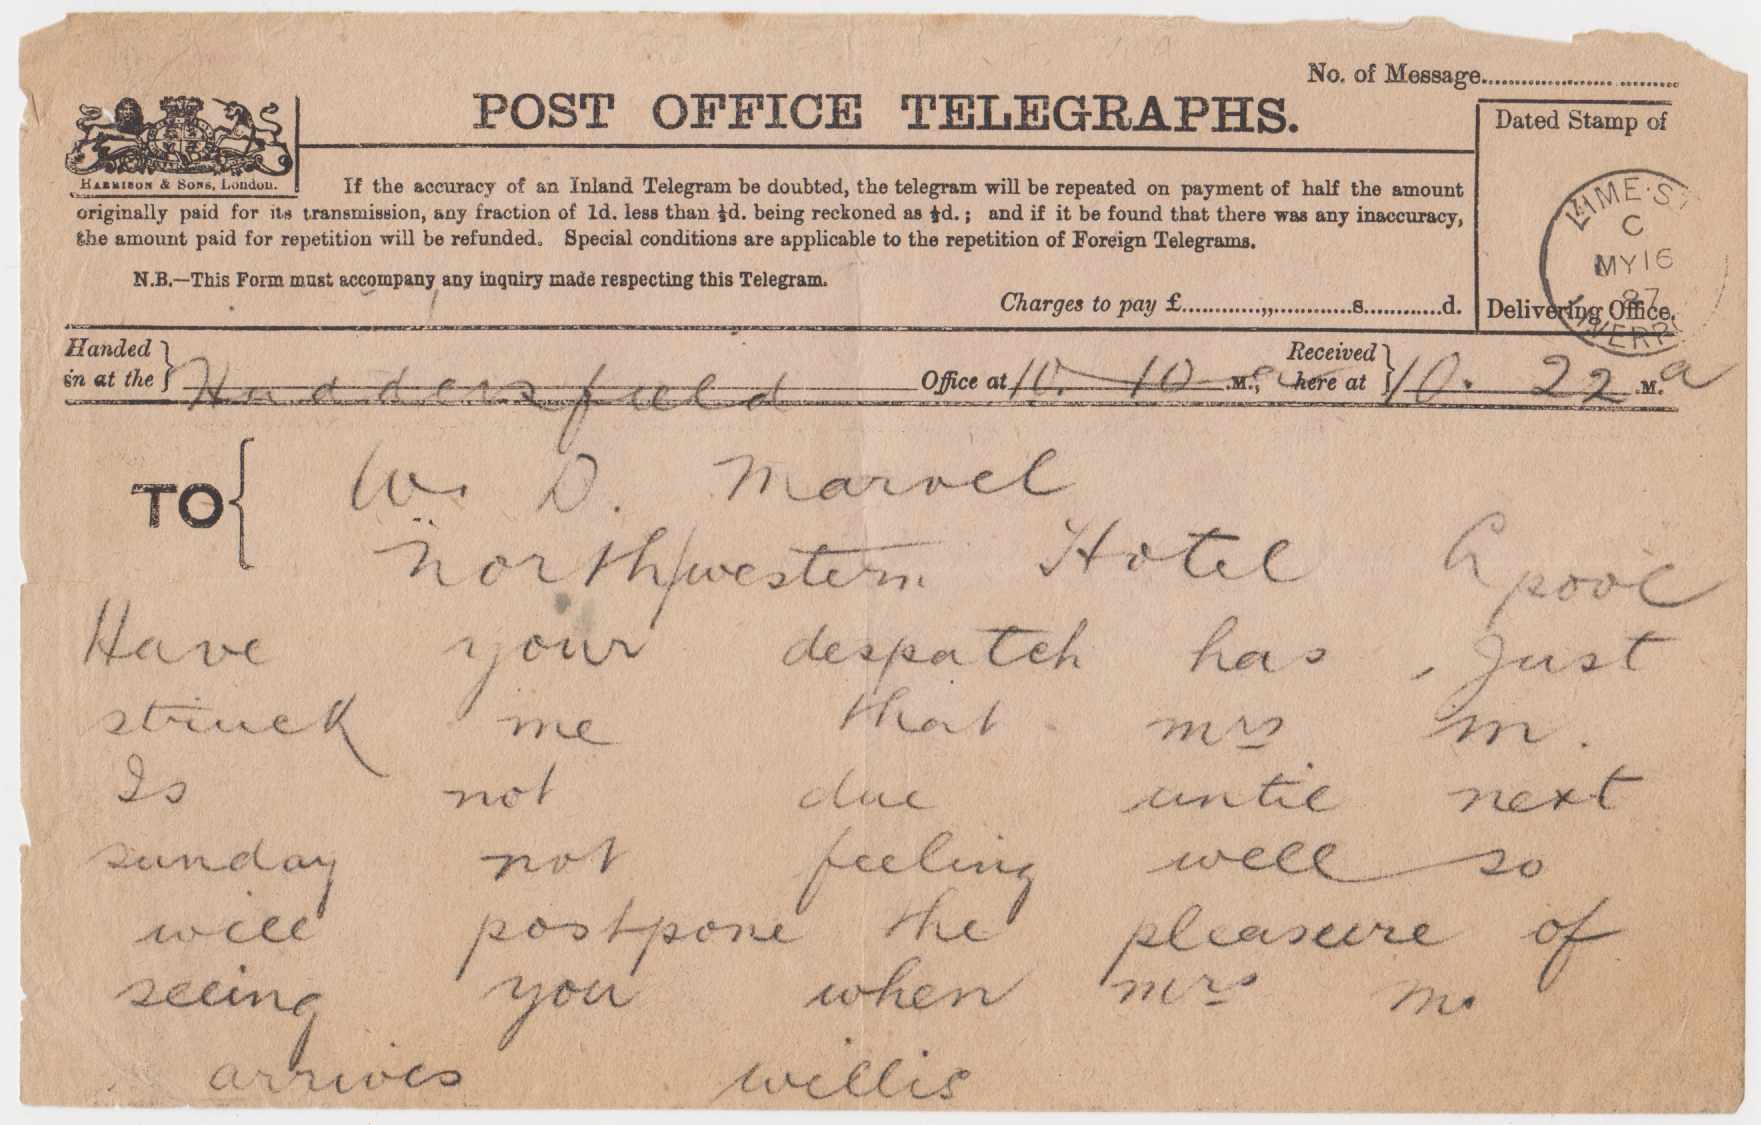 No. of Message
POST OFFICE TELEGRAPHS.
Dated Stamp of
HARRISON & SONS, London.
If the accuracy of an Inland Telegram be doubted, the telegram will be repeated on payment of half the amount
originally paid for its transmission, any fraction of 1d. less than ½d. being reckoned as ½d.; and if it be found that there was any inaccuracy,
the amount paid for repetition will be refunded. Special conditions are applicable to the repetition of Foreign Telegrams.
N.B.—This Form must accompany any inquiry made respecting this Telegram.
Charges to pay £ s. d.
LIME·ST
C
MY16
87
Delivering Office.
Handed in at the } Huddersfield Office at 10.10 a M., Received here at } 10.22 a M.
TO { W. D. Marvel
Northwestern Hotel Lpool
Have your despatch has Just
struck me that mrs m.
Is not due until next
sunday not feeling well so
will postpone the pleasure of
seeing you when mrs m.
arrives willis